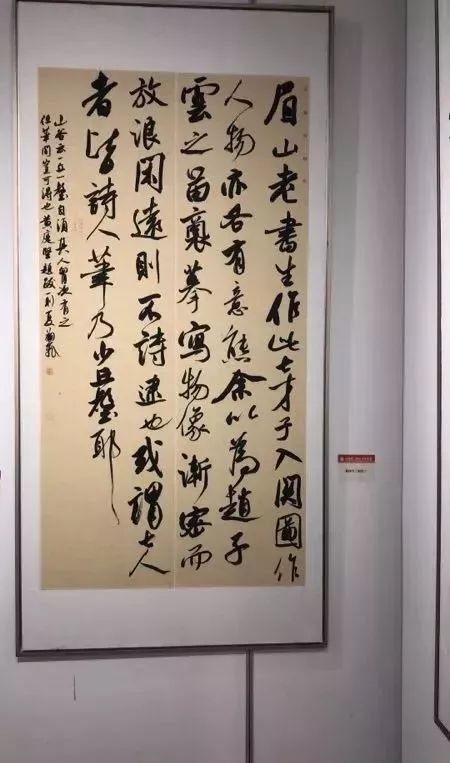 眉山老書生作此七才子入関圖作
人物亦各有意態余以為趙子
雲之苗裔摹寫物像漸密而
放浪閑遠則不詩逮也或謂七人
者皆詩人筆乃少丘壑耶
山谷云一丘一壑自須其人胸次有之
但筆間豈可得也黃庭堅題跋